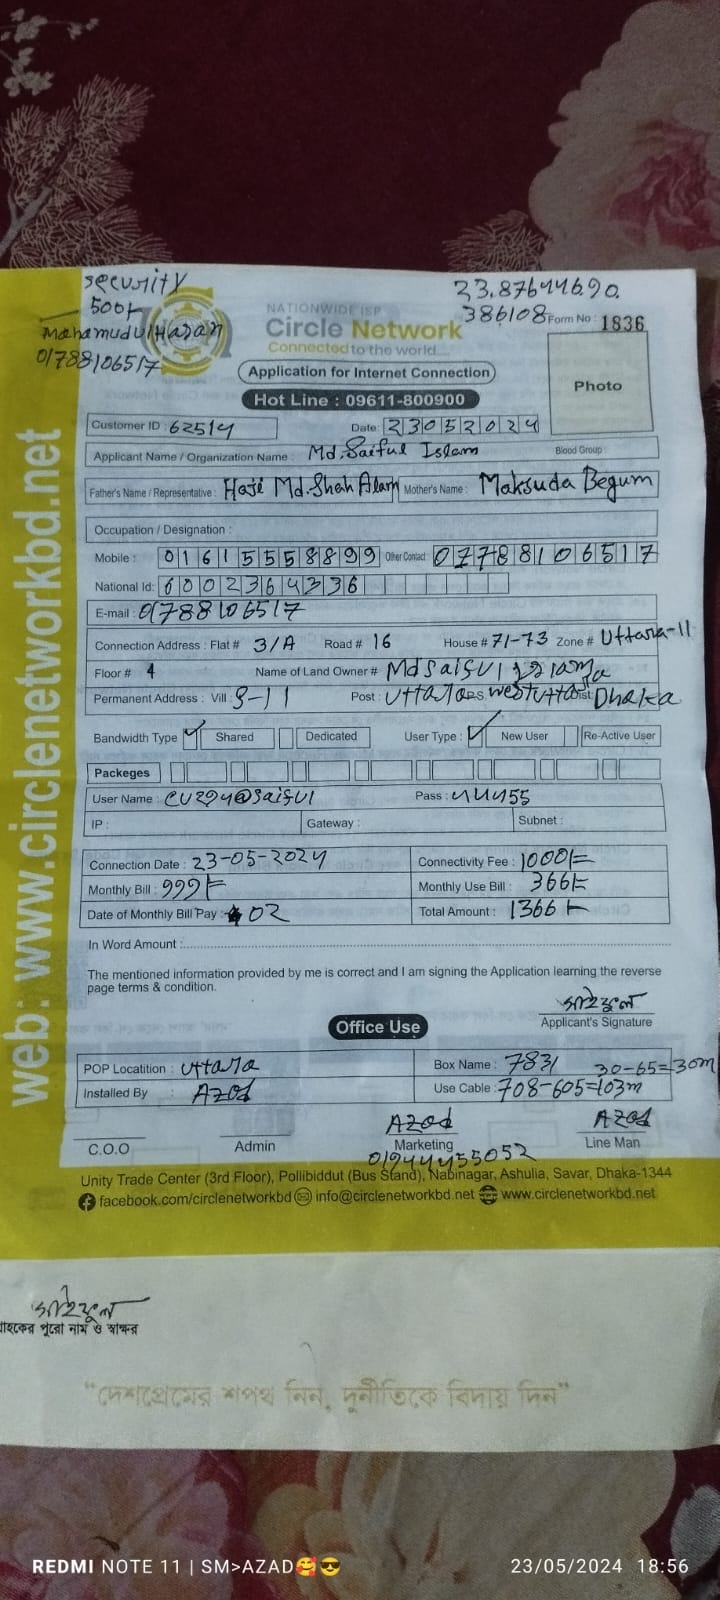 security
500/-
Mahamudul Hasan
01788106517
23.8764690.
386108
NATIONWIDE ISP
Circle Network
Connected to the world...
Form No : 1836
Application for Internet Connection
Hot Line : 09611-800900
Photo
Customer ID : 62514 Date: 23052024
Applicant Name / Organization Name : Md. Saiful Islam Blood Group :
Father's Name / Representative : Haji Md. Shah Alam Mother's Name : Maksuda Begum
Occupation / Designation :
Mobile : 01615558899 Other Contact: 07788106517
National Id: 6002364336
E-mail : 01788106517
Connection Address : Flat # 3/A Road # 16 House # 71-73 Zone # Uttara-11
Floor # 4 Name of Land Owner # Md saiful
Permanent Address : Vill : S-11 Post : Uttara P.S. west uttara Dist: Dhaka
Bandwidth Type ✓ Shared Dedicated User Type : ✓ New User Re-Active User
Packeges
User Name : CU294@saiful Pass : 444455
IP : Gateway : Subnet :
Connection Date : 23-05-2024 Connectivity Fee : 1000/=
Monthly Bill : 999/= Monthly Use Bill : 366/=
Date of Monthly Bill Pay : 02 Total Amount : 1366/-
In Word Amount :
The mentioned information provided by me is correct and I am signing the Application learning the reverse
page terms & condition.
সাইফুল
Applicant's Signature
Office Use
POP Locatition : Uttara Box Name : 7831 30-65=30m
Installed By : Azad Use Cable : 708-605=103m
Azad Azad
C.O.O Admin Marketing Line Man
01944455052
Unity Trade Center (3rd Floor), Pollibiddut (Bus Stand), Nabinagar, Ashulia, Savar, Dhaka-1344
facebook.com/circlenetworkbd info@circlenetworkbd.net www.circlenetworkbd.net
web: www.circlenetworkbd.net
সাইফুল
াহকের পুরো নাম ও স্বাক্ষর
"দেশপ্রেমের শপথ নিন, দুর্নীতিকে বিদায় দিন"
REDMI NOTE 11 | SM>AZAD🥰😎 23/05/2024 18:56